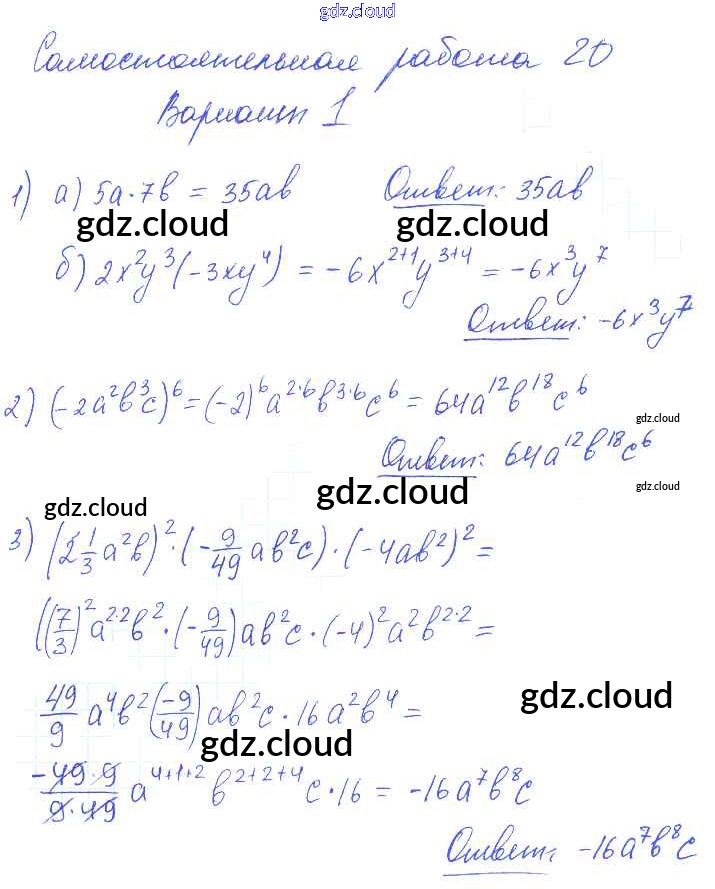 gdz.cloud
Самостоятельная работа 20
Вариант 1
1) а) 5a·7b = 35ab Ответ: 35ab
gdz.cloud gdz.cloud
б) 2x²y³(-3xy⁴) = -6x²⁺¹y³⁺⁴ = -6x³y⁷
Ответ: -6x³y⁷
2) (-2a²b³c)⁶ = (-2)⁶a²·⁶b³·⁶c⁶ = 64a¹²b¹⁸c⁶
gdz.cloud
Ответ: 64a¹²b¹⁸c⁶
gdz.cloud gdz.cloud
gdz.cloud
3) (2 1/3 a²b)²·(-9/49 ab²c)·(-4ab²)² =
((7/3)²a²·²b²·(-9/49)ab²c·(-4)²a²b²·² =
49/9 a⁴b²(-9/49)ab²c·16a²b⁴ =
gdz.cloud
gdz.cloud
-49·9/9·49 a⁴⁺¹⁺²b²⁺²⁺⁴c·16 = -16a⁷b⁸c
Ответ: -16a⁷b⁸c